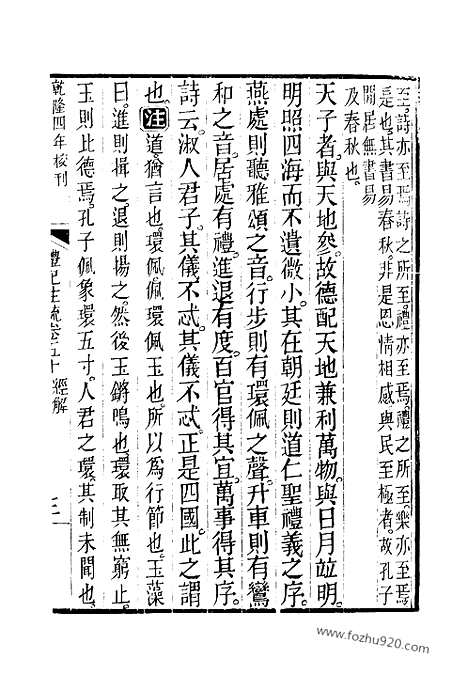 至。詩亦至焉。詩之所至。禮亦至焉。禮之所至。樂亦至焉
是也。其書易春秋。非是恩情相感與民至極者。故孔子
閒居無書易
及春秋也。
天子者。與天地參。故德配天地兼利萬物。與日月竝明。
明照四海而不遺微小。其在朝廷則道仁聖禮義之序。
燕處則聽雅頌之音。行步則有環佩之聲。升車則有鸞
和之音。居處有禮。進退有度。百官得其宜。萬事得其序。
詩云。淑人君子。其儀不忒。其儀不忒。正是四國。此之謂
也。注道。猶言也。環佩。佩環佩玉也。所以為行節也。玉藻
曰。進則揖之。退則揚之。然後玉鏘鳴也。環取其無窮止。
玉則比德焉。孔子佩象環五寸。人君之環。其制未聞也。
乾隆四年校刊
禮記注疏卷五十 經解
www.fozhu920.com